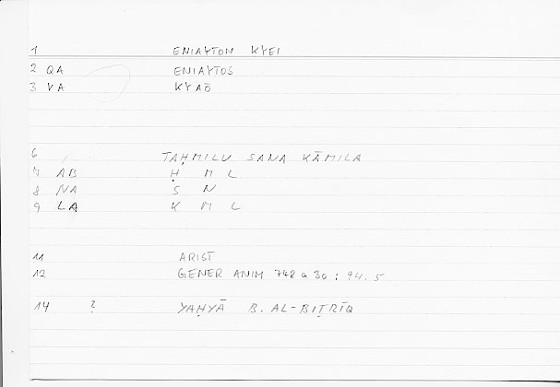 1 ENIAYTON KYEI
2 QA ENIAYTOS
3 VA KYAŌ
6 TAḤMILU SANA KĀMILA
7 AB Ḥ M L
8 NA S N
9 LA K M L
11 ARIST
12 GENER ANIM 748 a 30 : 94.5
14 ? YAḤYĀ B. AL-BIṬRĪQ